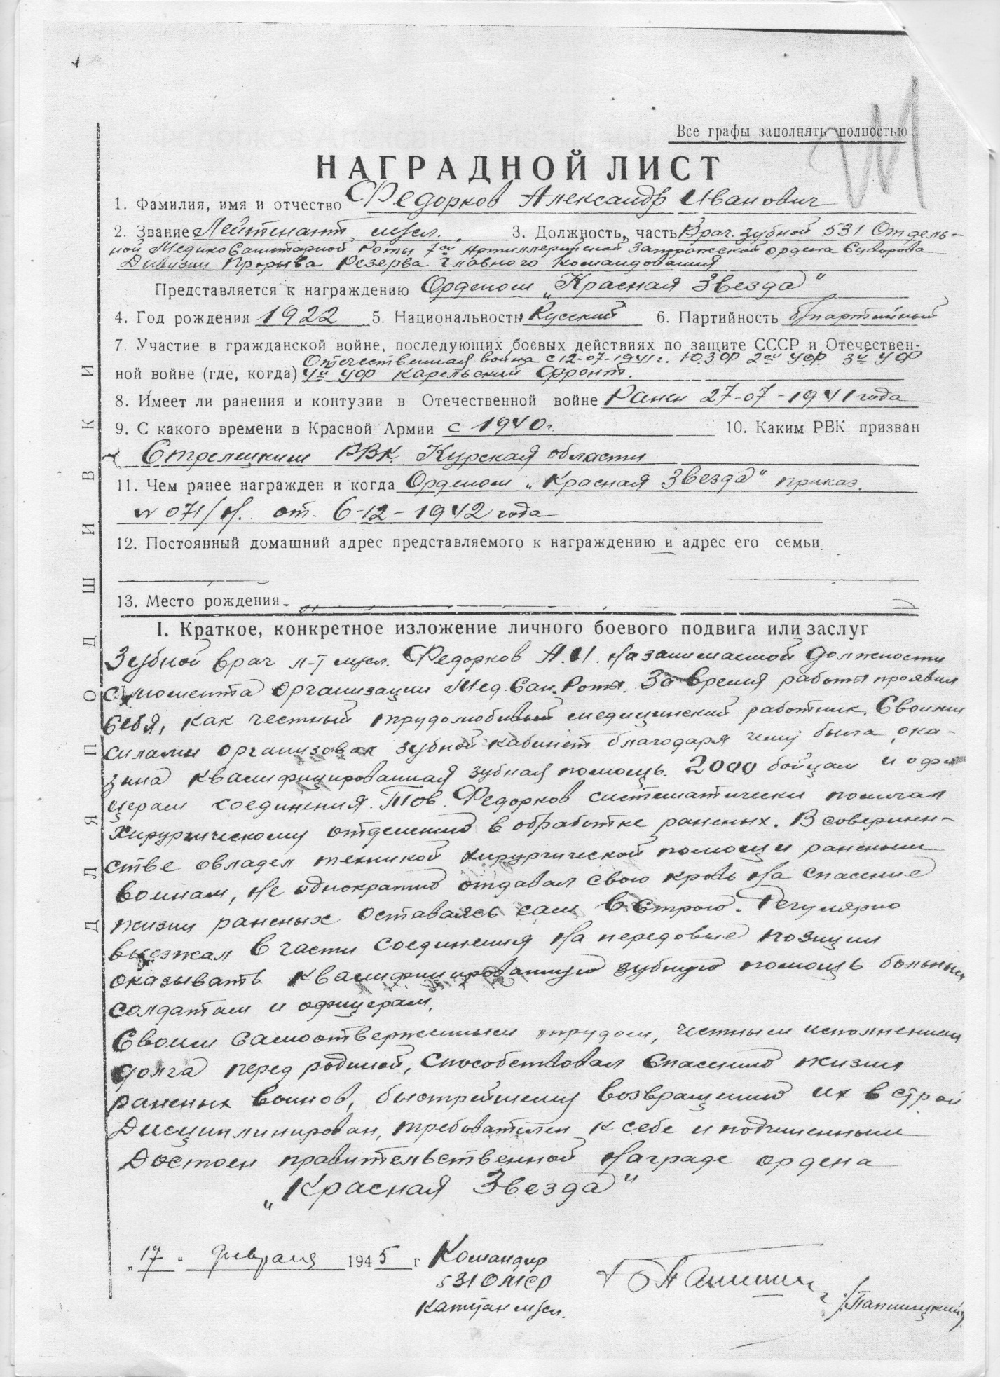 Все графы заполнять полностью
НАГРАДНОЙ ЛИСТ
1. Фамилия, имя и отчество Федорков Александр Иванович
2. Звание Лейтенант м/сл. 3. Должность, часть Врач зубной 531 Отдель-
ной Медико Санитарной Роты 7ой Артиллерийской Запорожской ордена Суворова
Дивизии Прорыва Резерва Главного Командования
Представляется к награждению Орденом „Красная Звезда"
4. Год рождения 1922 5. Национальность Русский 6. Партийность б/партийный
7. Участие в гражданской войне, последующих боевых действиях по защите СССР и Отечествен-
Отечественная война с 12-07-1941 г. ЮЗФ 2ой УФР 3й УФР
ной войне (где, когда) 4й УФР Карельский Фронт.
8. Имеет ли ранения и контузии в Отечественной войне Ранен 27-07-1941 года
9. С какого времени в Красной Армии с 1940 г. 10. Каким РВК призван
Стрелецким РВК. Курская области
11. Чем ранее награжден и когда Орденом „Красная Звезда" приказ.
N 071/н. от. 6-12-1942 года
12. Постоянный домашний адрес представляемого к награждению и адрес его семьи
13. Место рождения
I. Краткое, конкретное изложение личного боевого подвига или заслуг
Зубной врач л-т м/сл. Федорков А.И. на занимаемой должности
с момента организации Мед. Сан. Роты. За время работы проявил
себя, как честный трудолюбивый медицинский работник. Своими
силами организовал зубной кабинет благодаря чему была ока-
зана квалифицированная зубная помощь. 2000 бойцам и офи
церам соединения. Тов. Федорков систематически помогал
хирургическому отделению в обработке раненых. В совершен-
стве овладел техникой хирургической помощи раненым
воинам, не однократно отдавал свою кровь на спасение
жизни раненых оставаясь сам в строю. Регулярно
выезжал в части соединения на передовые позиции
оказывать квалифицированную зубную помощь больным
солдатам и офицерам.
Своим самоотверженным трудом, честным исполнением
долга перед родиной, способствовал спасению жизни
раненых воинов, быстрейшему возвращению их в строй
Дисциплинирован, требователен к себе и подчиненным
Достоен правительственной награде ордена
„Красная Звезда"
„17" февраля 1945 г. Командир
531 ОМСР
Капитан м/сл.
ДЛЯ ПОДШИВКИ